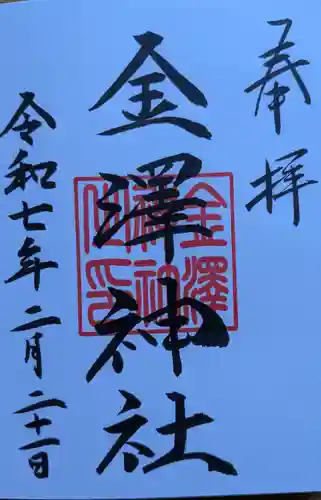 奉拝
金澤神社
金澤神社之印
令和七年二月二十一日